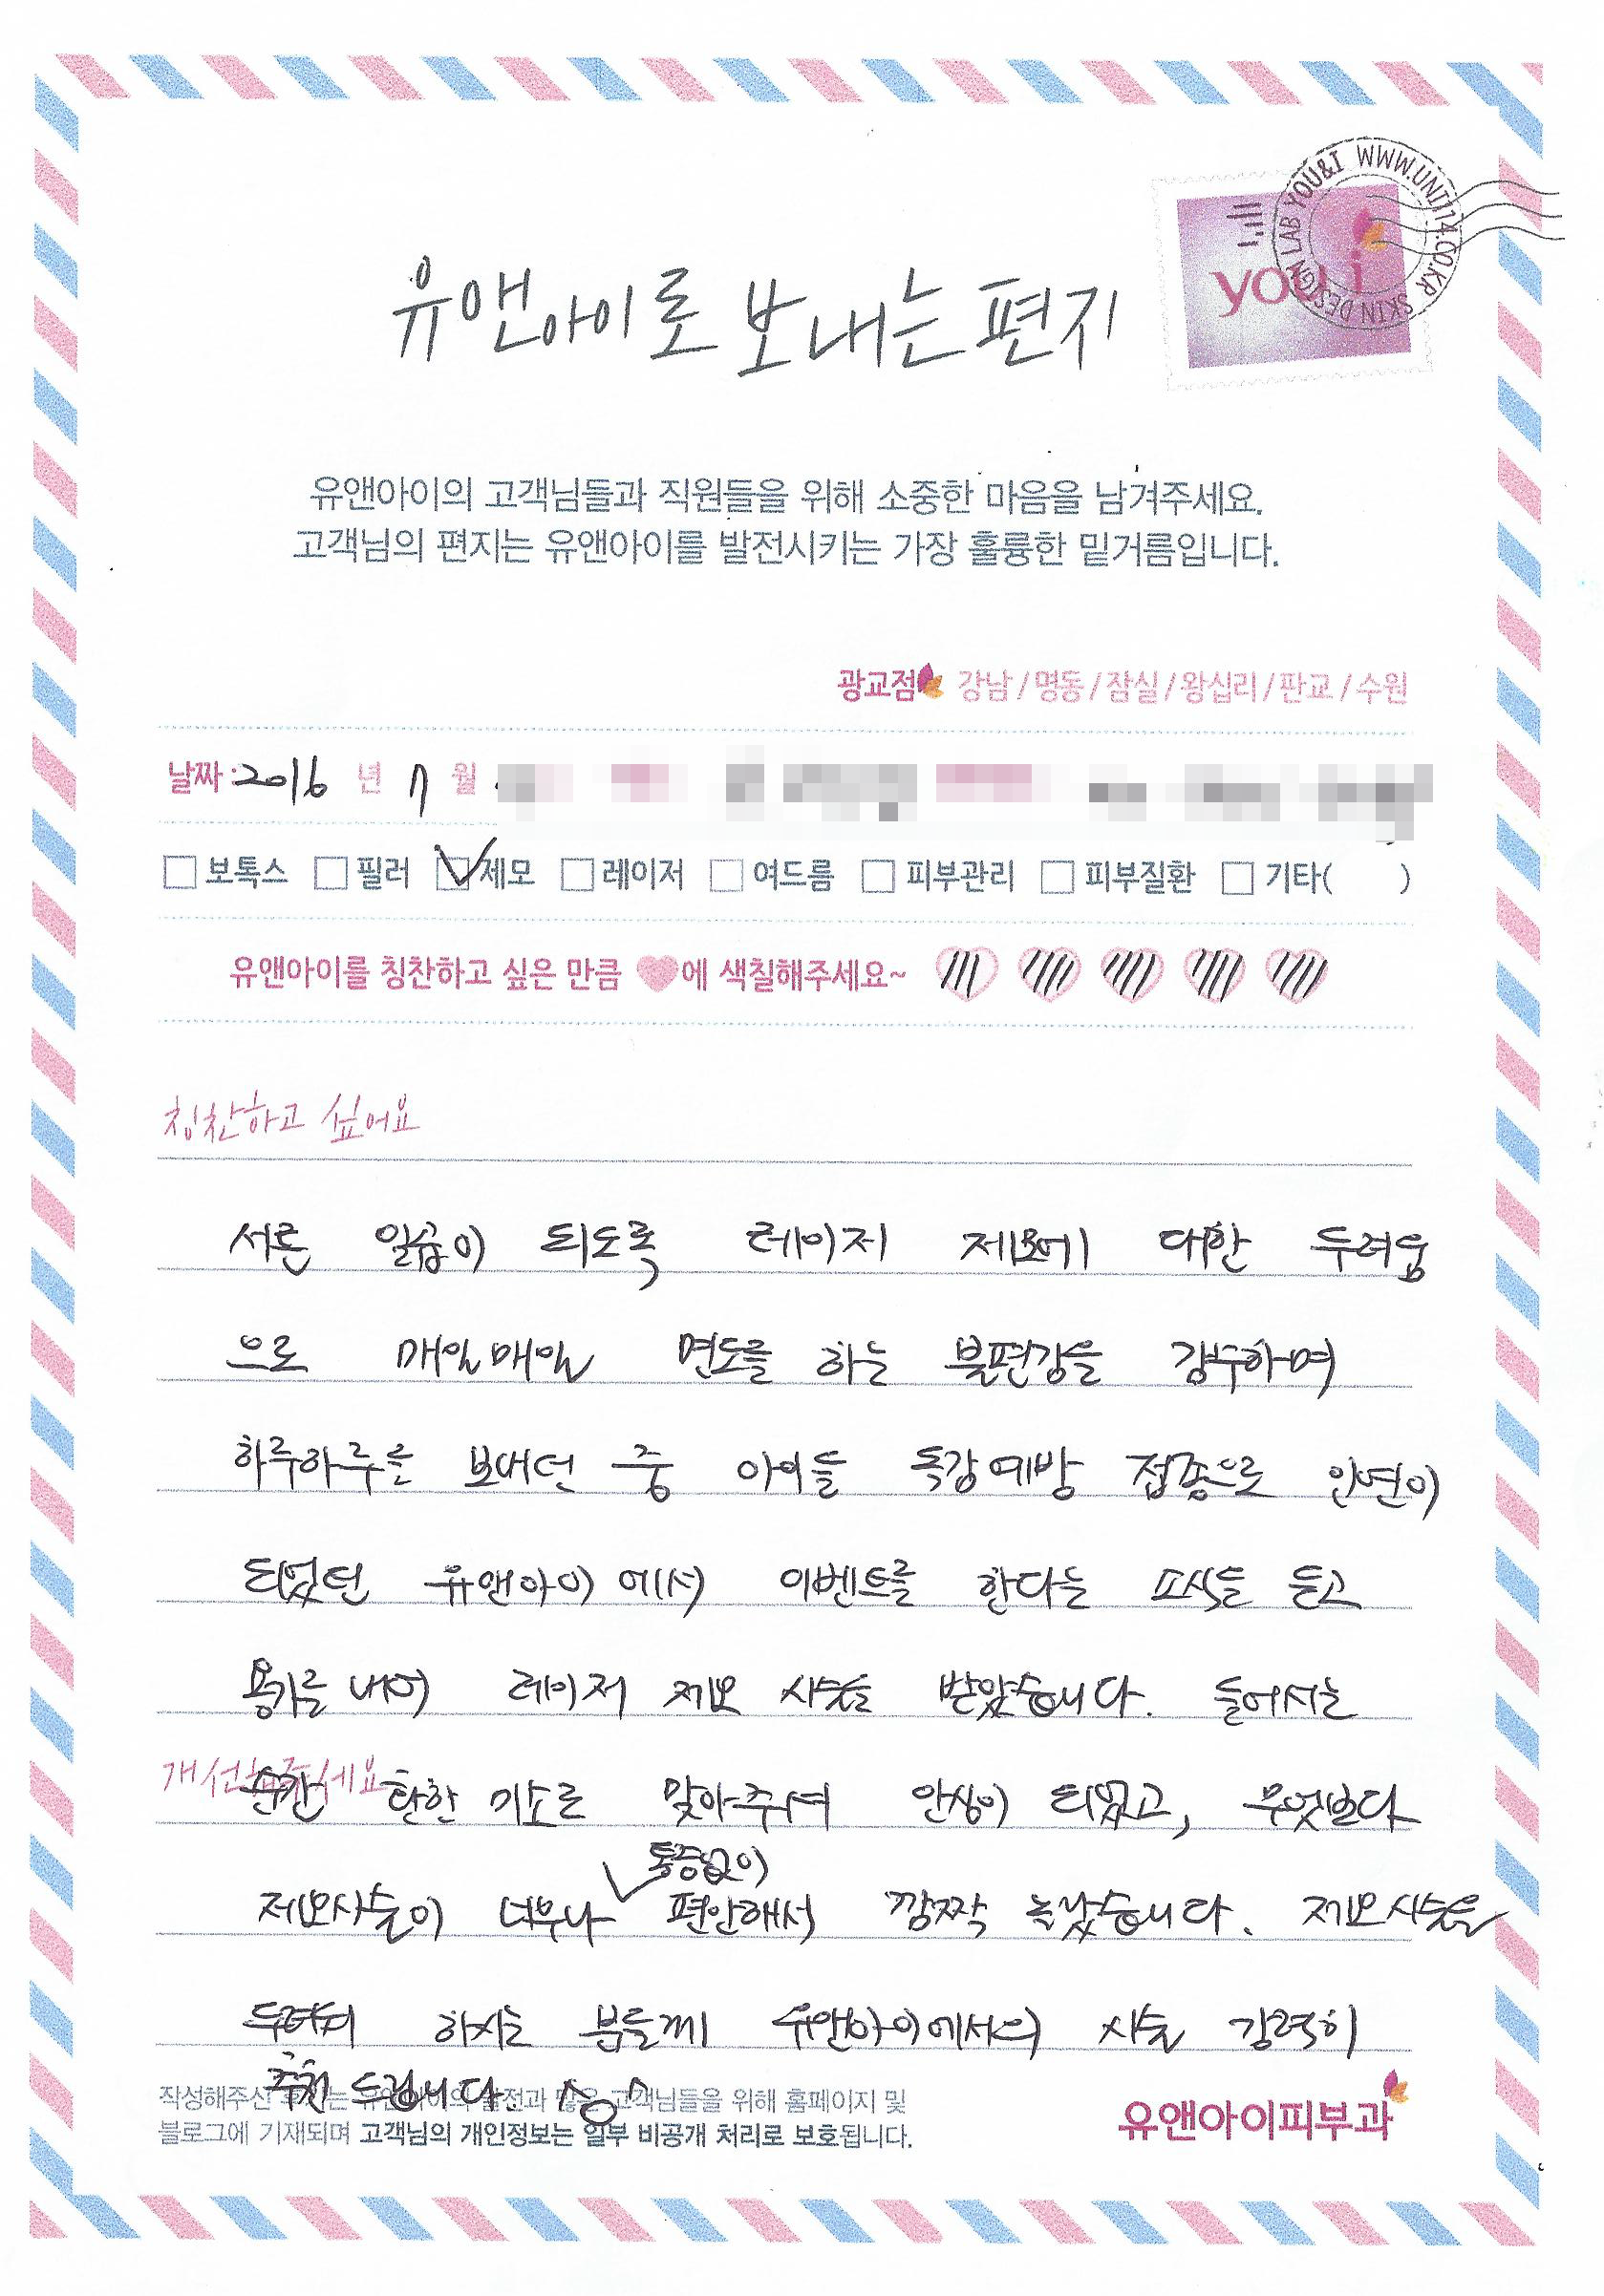 YOU&I WWW.UNI114.CO.KR SKIN DESIGN LAB
you i
유앤아이로 보내는 편지
유앤아이의 고객님들과 직원들을 위해 소중한 마음을 남겨주세요.
고객님의 편지는 유앤아이를 발전시키는 가장 훌륭한 밑거름입니다.
광교점 강남/명동/잠실/왕십리/판교/수원
날짜: 2016 년 7 월
보톡스 제모 필러 레이저 여드름 피부관리 피부질환 기타( )
유앤아이를 칭찬하고 싶은 만큼 에 색칠해주세요~
칭찬하고 싶어요
서른 일곱이 되도록 레이저 제모에 대한 두려움
으로 매일매일 면도를 하는 불편감을 감수하며
하루하루를 보내던 중 아이들 독감예방 접종으로 인연이
되었던 유앤아이에서 이벤트를 한다는 소식을 듣고
용기를 내어 레이저 제모 시술을 받았습니다. 들어서는
개선해주세요
순간 환한 미소로 맞아주셔 안심이 되었고, 무엇보다
통증없이
제모시술이 너무나 편안해서 깜짝 놀랐습니다. 제모시술을
두려워 하시는 분들께 유앤아이에서의 시술 강력히
추천 드립니다. ^o^
작성해주신 후기는 유앤아이의 발전과 많은 고객님들을 위해 홈페이지 및
블로그에 기재되며 고객님의 개인정보는 일부 비공개 처리로 보호됩니다.
유앤아이피부과